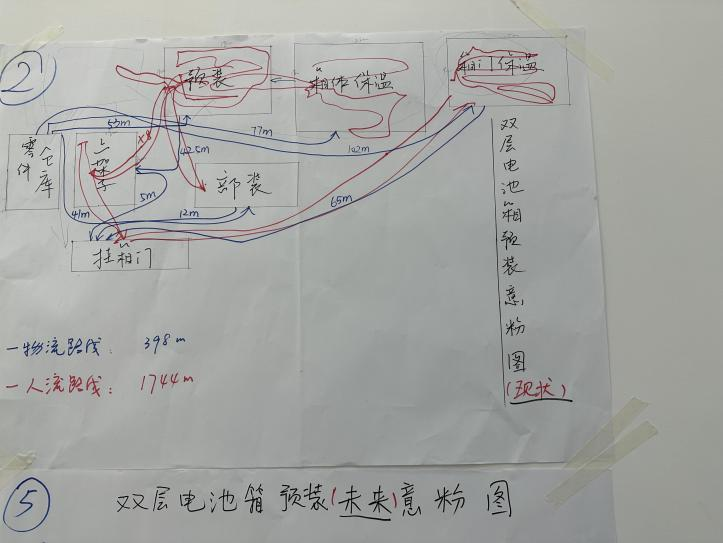 2
预装
箱体保温
箱门保温
零件
仓库
上架子
部装
挂箱门
53m
77m
102m
x8
42.5m
5m
41m
12m
65m
双层电池箱预装意粉图
(现状)
一物流路线: 398m
一人流路线: 1744m
5
双层电池箱预装(未来)意粉图